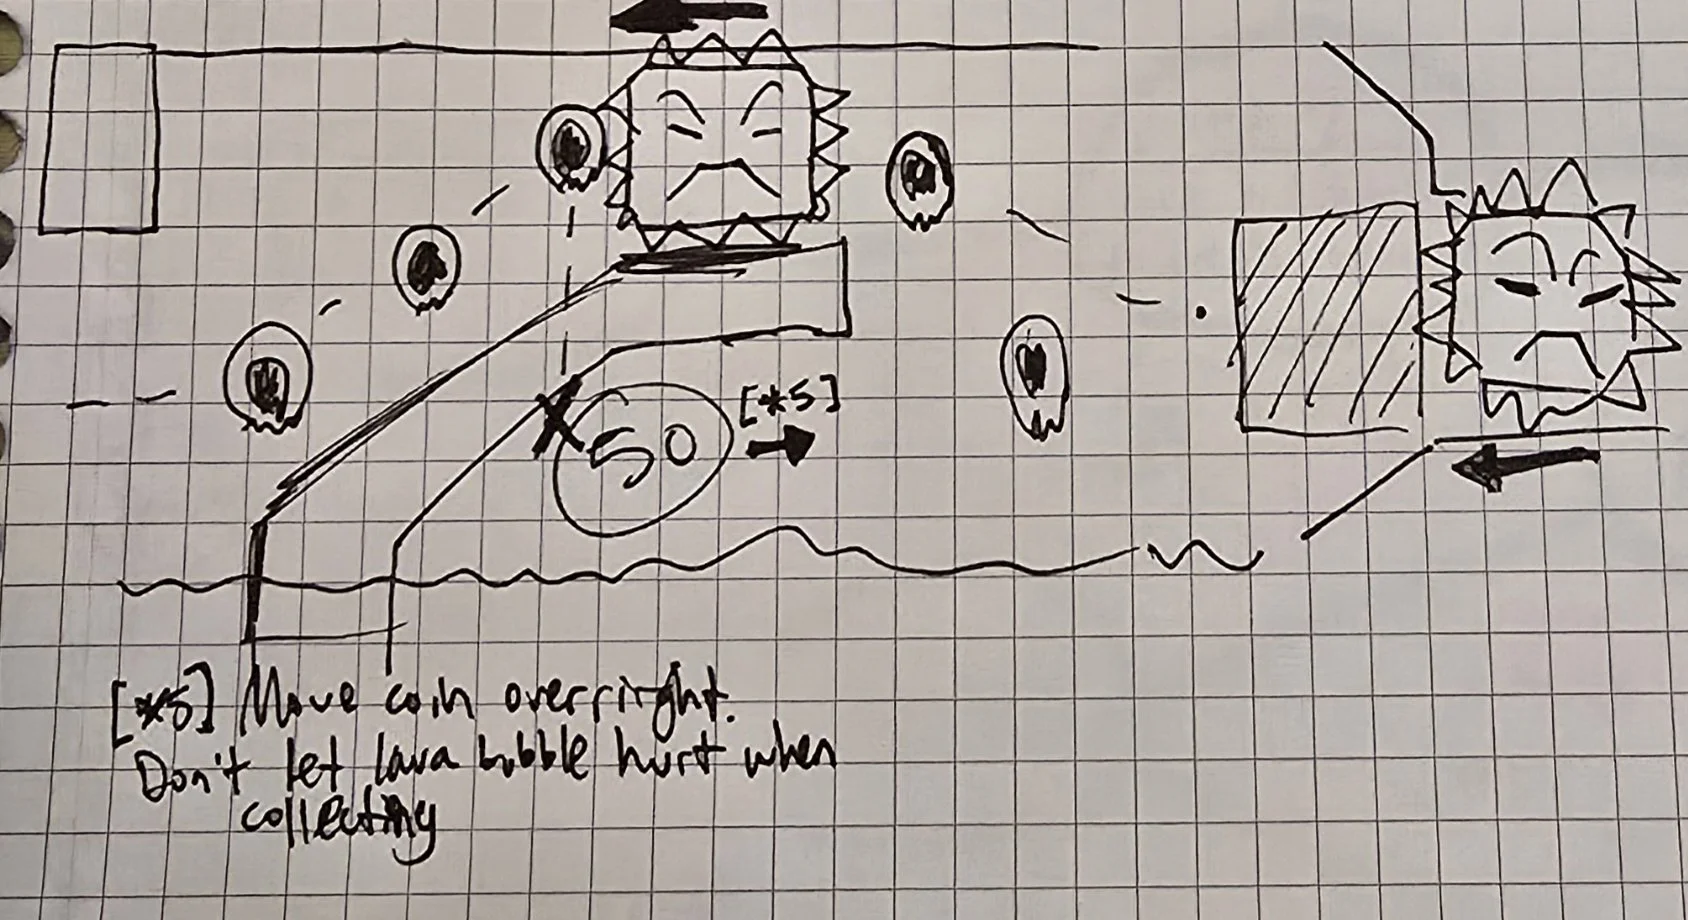 50 [*5]
[*5] Move coin over rirght.
Don't let lava bubble hurt when
collecting